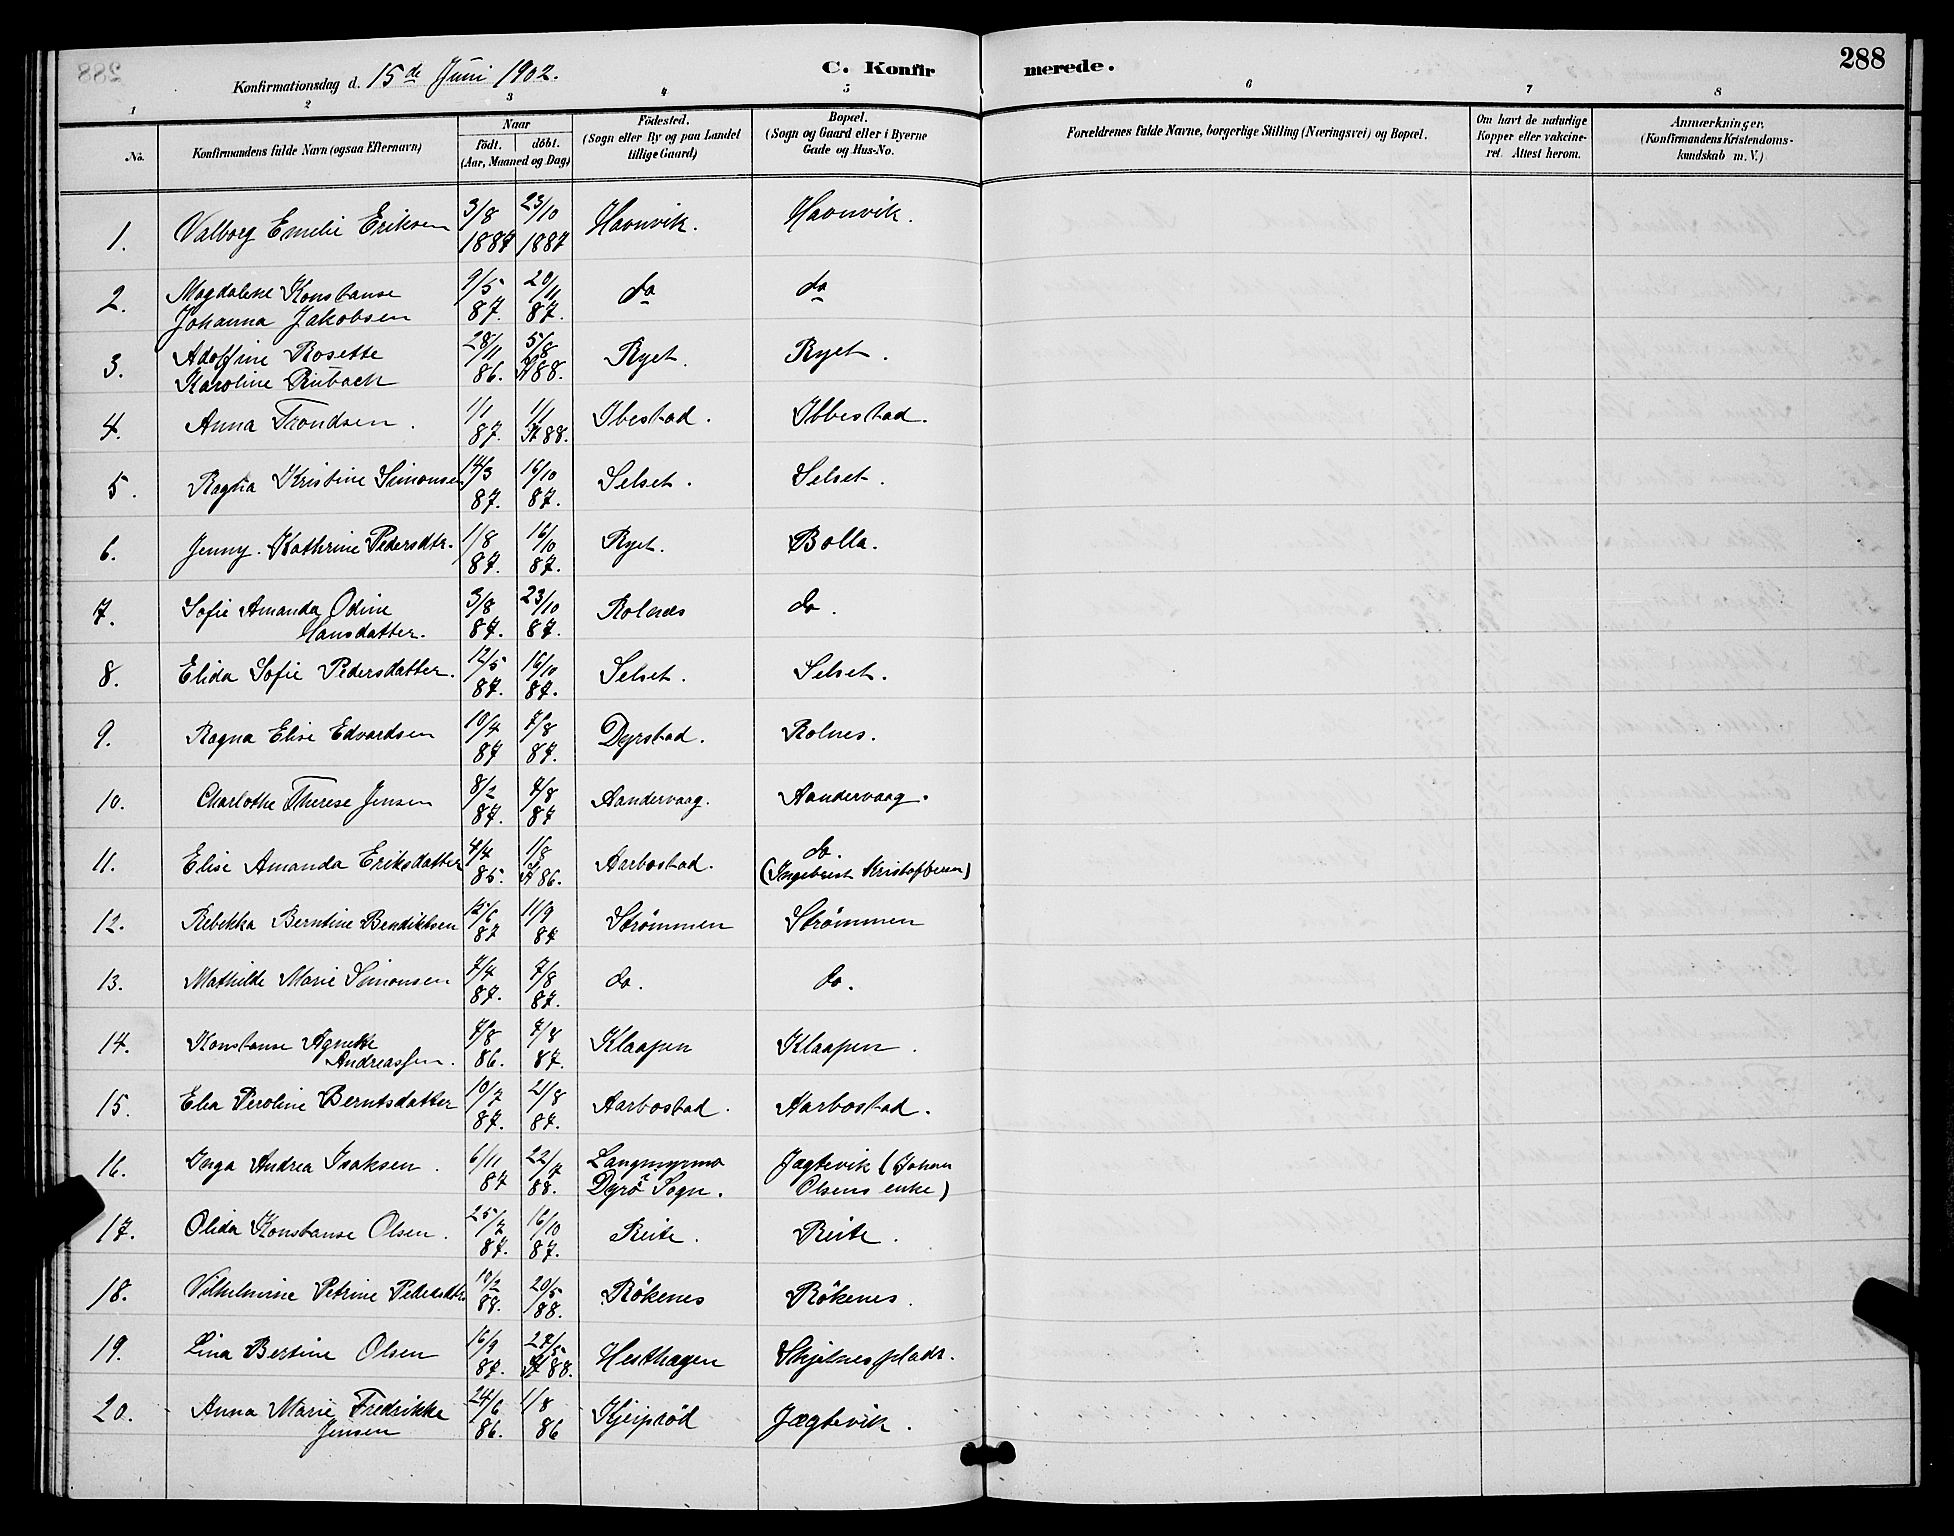 288
Konfirmationsdag d. 15de Juni 1902.
C. Konfirmerede.
1 2 3 4 5 6 7 8
No.
Konfirmandens fulde Navn (ogsaa Efternavn)
Naar
födt. döbt.
(Aar, Maaned og Dag)
Födested.
(Sogn eller By og paa Landet
tillige Gaard)
Bopæl.
(Sogn og Gaard eller i Byerne
Gade og Hus-No.
Forældrenes fulde Navne, borgerlige Stilling (Næringsvei) og Bopæl.
Om havt de naturlige
Kopper eller vakcine-
ret. Attest herom.
Anmærkninger.
(Konfirmandens Kristendoms-
kundskab m. V.)
1. Valborg Emelie Eriksen 3/8 1887 23/10 1887 Havnvik. Havnvik.
2. Magdalene Konstanse
Johanna Jakobsen 9/5 87. 20/11 87. do do
3. Adolfine Rosette
Karoline Rubach 28/11 86. 5/8 88. Ryet. Ryet.
4. Anna Trondsen. 1/1 87. 1/1 St 88. Ibestad. Ibbestad.
5. Ragna Kristine Simonsen 14/3 87. 16/10 87. Selset. Selset.
6. Jenny. Kathrine Pedersdtr. 1/8 87. 16/10 87. Ryet. Bolla.
7. Sofie Amanda Odine
Hansdatter. 3/8 87. 23/10 87. Rolnes do.
8. Elida Sofie Pedersdatter. 12/5 87. 16/10 87. Selset. Selset.
9. Ragna Elise Edvardsen 10/4 87 7/8 87. Dyrstad. Rolnes.
10. Charlothe Therese Jensen 8/2 87. 7/8 87 Aandervaag. Aandervaag.
11. Elise Amanda Eriksdatter 4/4 85. 1/8 St 86. Aarbostad. do.
(Ingebrigt Kristoffersen)
12. Rebekka Berntine Bendiktsen 12/6 87 11/9 87 Strömmen Strömmen
13. Mathilde Marie Simonsen 7/4 87. 7/8 87. do. do.
14. Konstanse Agnethe
Andreassen. 7/8 86. 7/8 87. Klaapen Klaapen.
15. Elea Peroline Berntsdatter 10/7 87. 21/8 87. Aarbostad. Aarbostad.
16. Inga Andrea Isaksen. 6/11 87 22/7 88. Langmyrmo
Dyrö Sogn. Jægtevik (Johan
Olsens enke)
17. Olida Konstanse Olsen. 25/7 87. 16/10 87. Reite. Reite.
18. Vilhelmine Petrine Pedersdtr 10/2 88. 20/5 88. Rökenes Rökenes.
19. Lina Bertine Olsen 16/9 87. 27/5 St 88. Hesthagen Skjelnesplads.
20. Anna Marie Fredrikke
Jensen 24/6 86. 1/8 86 Kjeipröd Jægtevik.